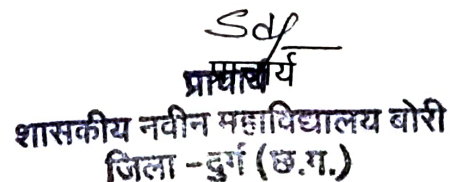 Sd/
प्राचार्य
शासकीय नवीन महाविद्यालय बोरी
जिला - दुर्ग (छ.ग.)